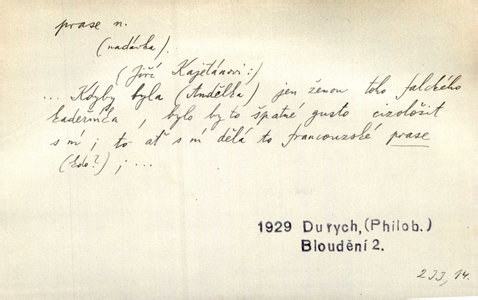 prase n.
(nadávka).
(Jiří Kajetánovi:)
... Kdyby byla (Andělka) jen ženou toho falckého
kadeřníka, bylo by to špatné gusto cizoložit
s ní; to ať s ní dělá to francouzské prase
(kdo?); ...
1929 Durych, (Philob.)
Bloudění 2.
233, 14.